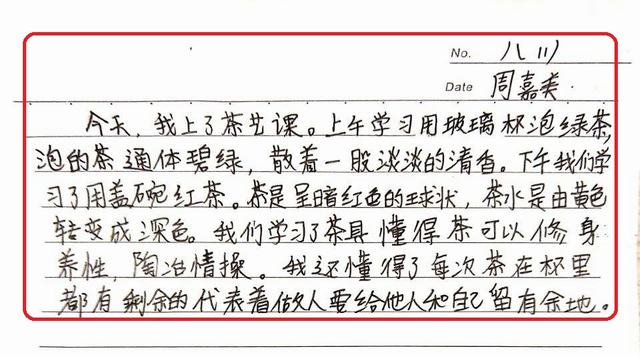 No. 八(11)
Date 周嘉美
今天,我上了茶艺课。上午学习用玻璃杯泡绿茶,
泡的茶通体碧绿,散着一股淡淡的清香。下午我们学
习了用盖碗红茶。茶是呈暗红色的球状,茶水是由黄色
转变成深色。我们学习了茶具懂得茶可以修身
养性,陶冶情操。我还懂得了每次茶在杯里
都有剩余的代表着做人要给他人和自己留有余地。